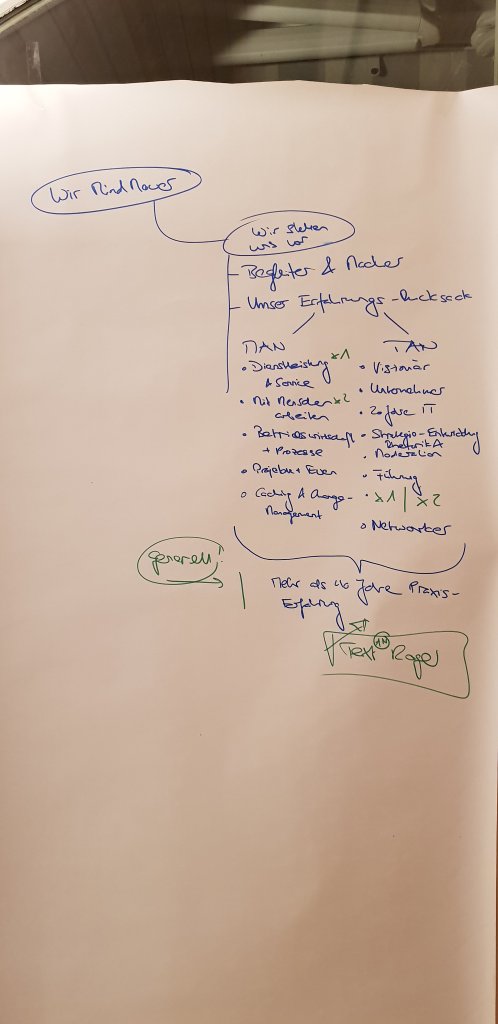 Wir MindMover
Wir stellen
uns vor
- Begleiter & Macher
- Unser Erfahrungs-Rucksack
MAN
• Dienstleistung x1
& Service
• Mit Menschen x2
arbeiten
• Betriebswirtschaft
+ Prozesse
• Projekte + Even
•
& Change-
Management
TAN
• Visionär
• Unternehmer
• 20 Jahre IT
• Strategie-Entwicklung
• Rhetorik &
Moderation
• Führung
• x1 | x2
• Networker
generell!
Mehr als 40 Jahre Praxis-
Erfahrung
Text Roger